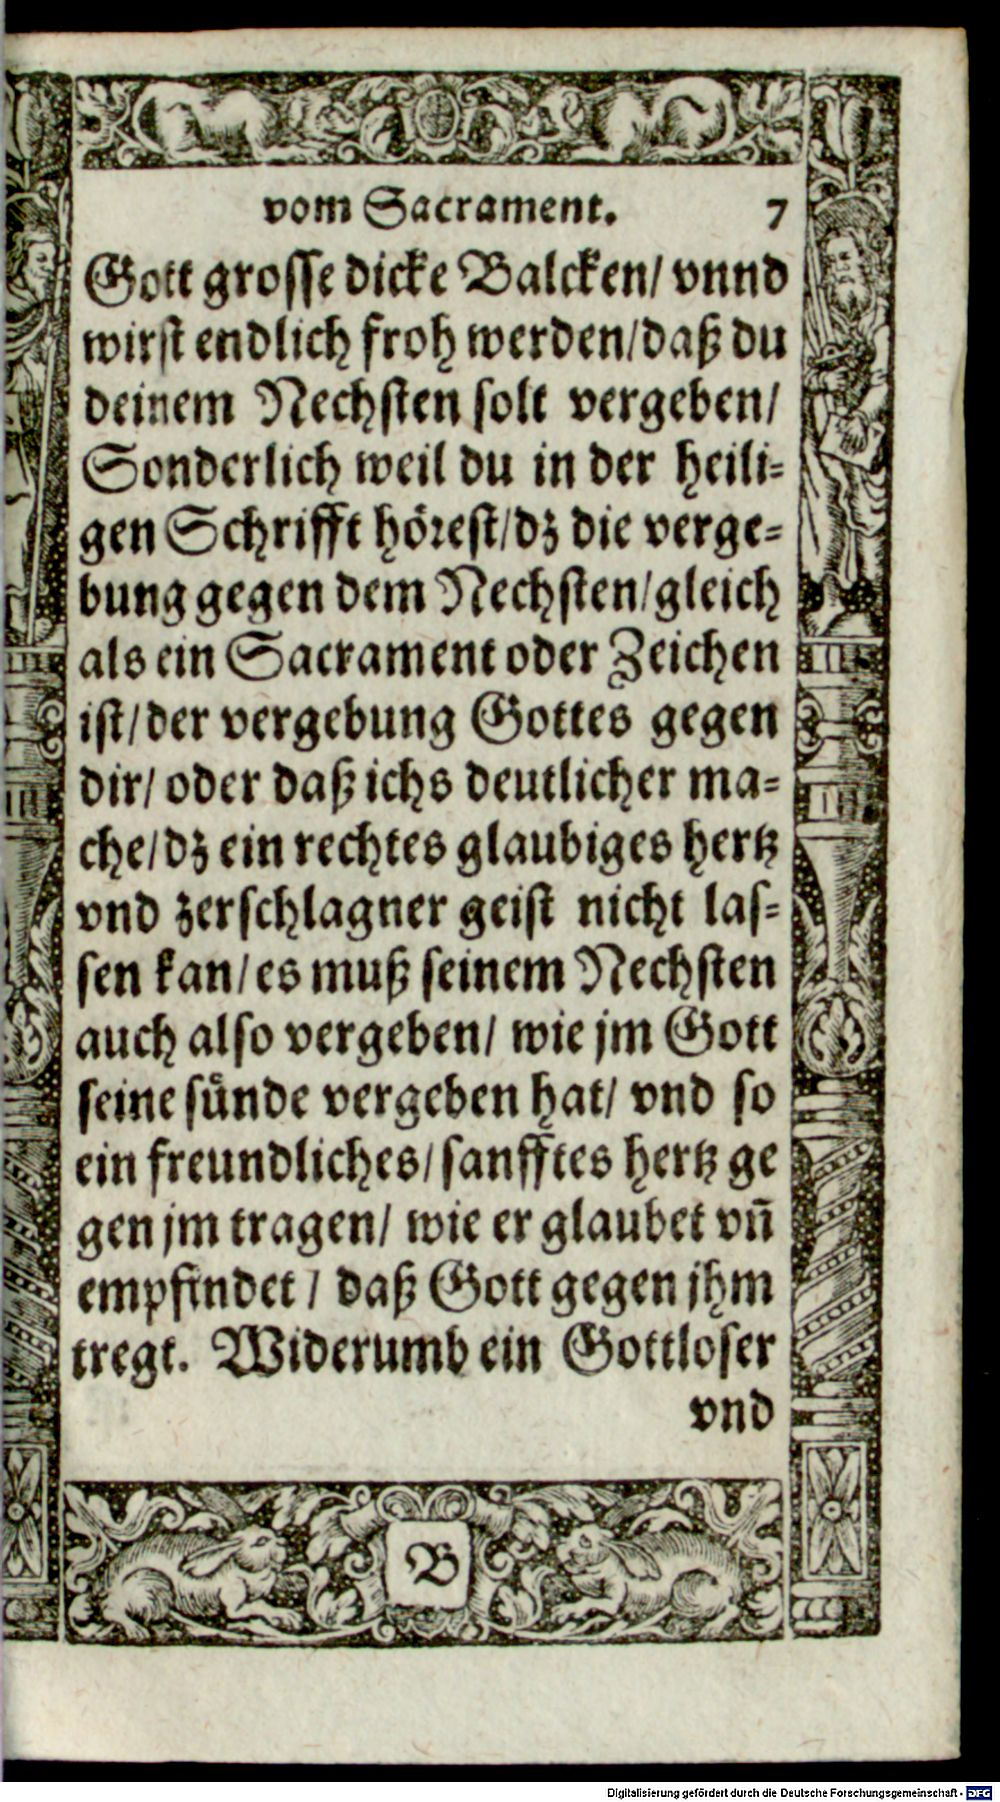 vom Sacrament. 7
Gott grosse dicke Balcken/ vnnd
wirst endlich froh werden/daß du
deinem Nechsten solt vergeben/
Sonderlich weil du in der heili-
gen Schrifft hörest/dz die verge-
bung gegen dem Nechsten/gleich
als ein Sacrament oder Zeichen
ist/der vergebung Gottes gegen
dir/ oder daß ichs deutlicher ma-
che/dz ein rechtes glaubiges hertz
vnd zerschlagner geist nicht las-
sen kan/es muß seinem Nechsten
auch also vergeben/ wie jm Gott
seine sünde vergeben hat/ vnd so
ein freundliches/sanfftes hertz ge
gen jm tragen/ wie er glaubet vn̄
empfindet / daß Gott gegen jhm
tregt. Widerumb ein Gottloser
vnd
B
Digitalisierung gefördert durch die Deutsche Forschungsgemeinschaft - DFG